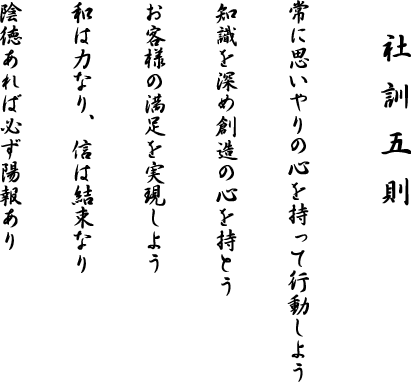 社訓五則
常に思いやりの心を持って行動しよう
知識を深め創造の心を持とう
お客様の満足を実現しよう
和は力なり、信は結束なり
陰徳あれば必ず陽報あり